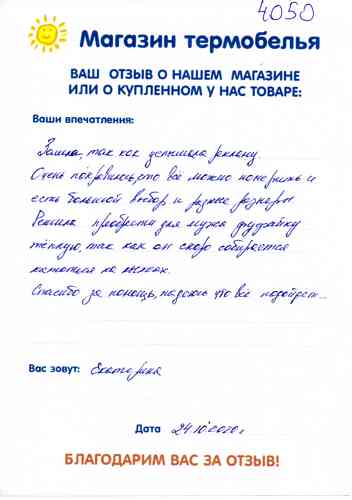 4050
Магазин термобелья
ВАШ ОТЗЫВ О НАШЕМ МАГАЗИНЕ
ИЛИ О КУПЛЕННОМ У НАС ТОВАРЕ:
Ваши впечатления:
Зашла, так как услышала рекламу.
Очень понравилось, что все можно померить и
есть большой выбор и разные размеры
Решила приобрести для мужа фуфайку
тёплую, так как он скоро собирается
кататься на лыжах.
Спасибо за помощь, надеюсь что всё подойдёт...
Вас зовут: Екатерина
Дата 24.10.2010г
БЛАГОДАРИМ ВАС ЗА ОТЗЫВ!